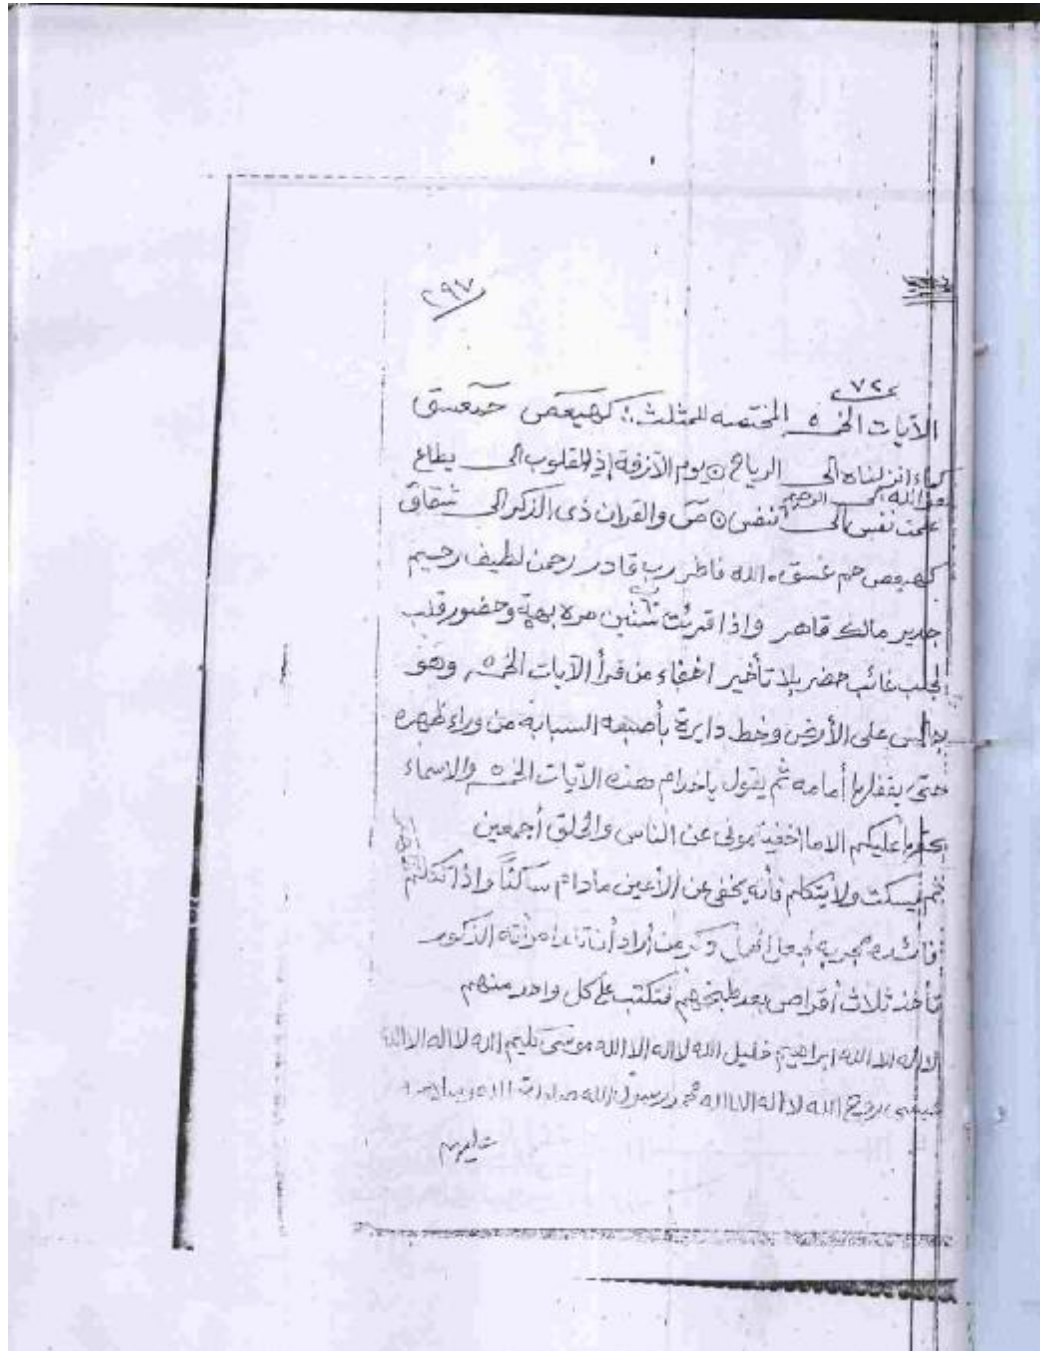 ٢٩٧
٧٢
الآيات الخمسه المختصه للمثلث :: كهيعص حمعسق
كماء انزلناه الى الرياح ۞ يوم الآزفة إذ القلوب الى يطاع
هو الله الى الرحيم
علمت نفس الى تنفس ۞ ص والقران ذى الذكر الى شقاق
كهيعص حم عسق ۰ الله فاطر رب قادر رحمن لطيف رحيم
جدير مالك قاهر واذا قرئت ستين مرة بهمة وحضور قلب
لجلب غائب حضر بلا تأخير اخفاء من قرأ الآيات الخمسه وهو
جالس على الأرض وخط دايرة بأصبعه السبابه من وراء ظهره
حتى يقفلها أمامه ثم يقول ياخدام هذه الآيات الخمسه والاسماء
بحقها عليكم الا ما اخفيتمونى عن الناس والخلق أجمعين
ثم يسكت ولا يتكلم فأنه يخفى عن الأعين مادام ساكتًا واذا تكلم
ظهر
فائده مجربه من أراد أن تلد امرأته الذكور
تأخذ ثلاث أقراص بعد طبخهم فتكتب على كل واحد منهم
لا اله الا الله ابراهيم خليل الله لا اله الا الله موسى كليم الله لا اله الا الله
عيسى روح الله لا اله الا الله محمد رسول الله صلوات الله وسلامه
عليهم